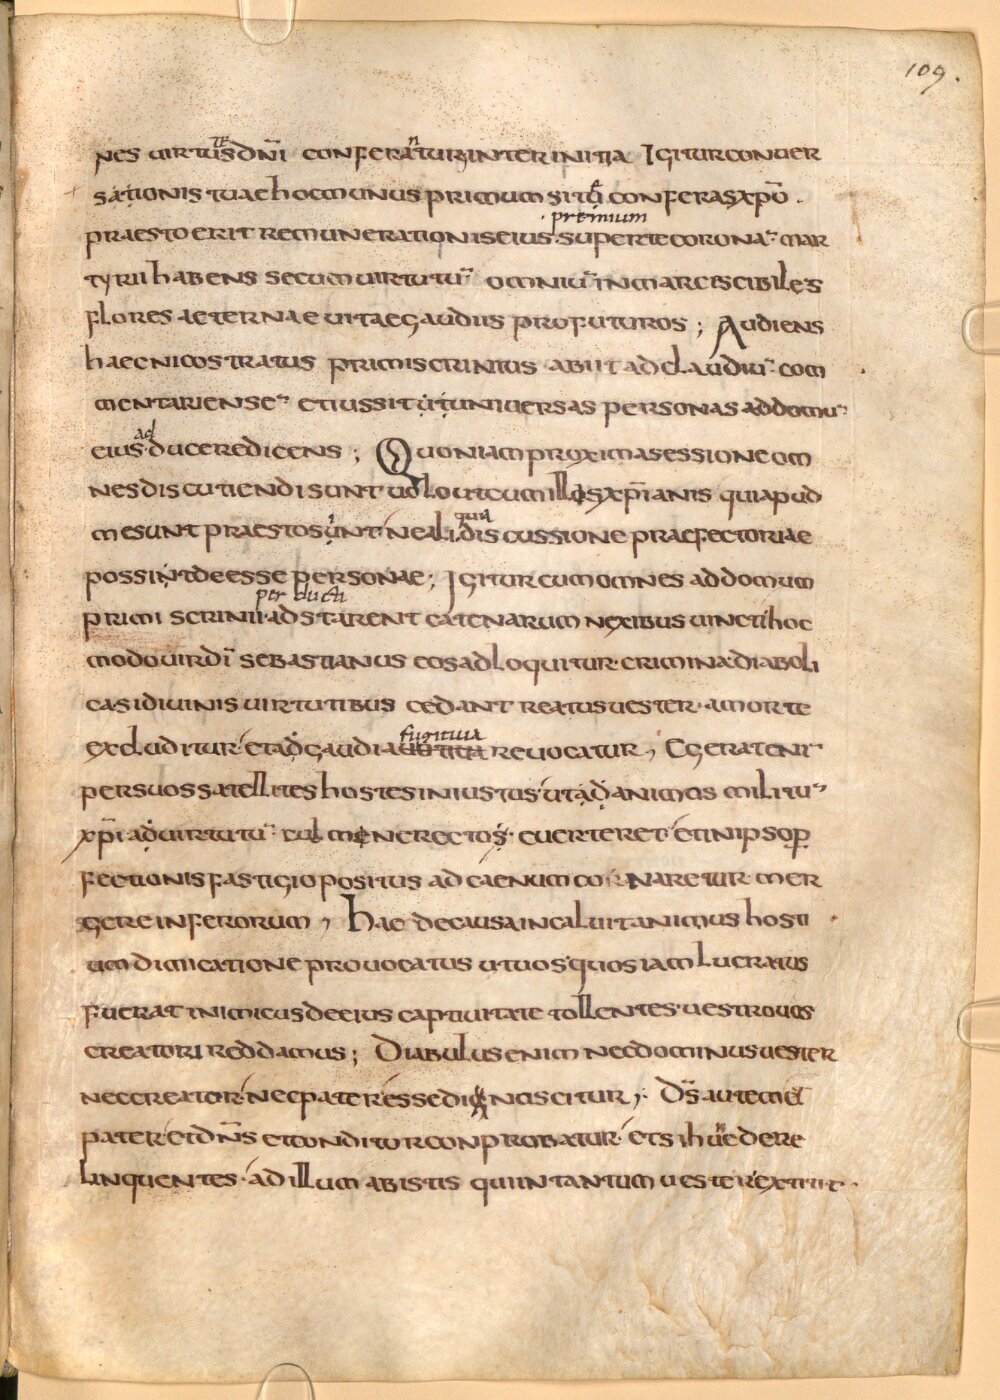 109.
nes uirtus dñi conferatur inter initia Igitur conuer
sationis tuae hoc munus primum sit ut conferas xpo .
premium
praesto erit remunerationis eius. super te corona¯ mar
tyrii habens secum uirtutu¯ omniu¯ inmarciscibiles
flores aeternae uitae gaudiis profuturos ; Audiens
haec nicostratus primiscrinius abiit ad claudiu¯ com
mentariense¯ et iussit ut uniuersas personas ad domu¯
ad
eius duceret dicens ; Quoniam proxima sessione om
nes discutiendi sunt uolo ut eum illis xpianis qui apud
qua
me sunt praesto sint ne ali discussione praefectoriae
possint deesse personae ; Igitur cum omnes ad domum
per ducti
primi scrinii adstarent catenarum nexibus uincti hoc
modo uir di¯ sebastianus eos adloquitur. crimina diaboli
ca si diuinis uirtutibus cedant reatus uester a morte
fugitiua
excluditur et ad gaudia reuocatur , Egerat eni¯
per suos satellites hostes iniustus ut ad animos militu¯
xpi ad uirtutu¯ culmen erectos. euerteret et in ipso p
fectionis fastigio positus ad caenum conaretur mer
gere inferorum , Hac de causa incaluit animus hosti
um dimicatione prouocatus ut uos quos iam lucratus
fuerat inimicus de eius captiuitate tollentes. uestro uos
creatori reddamus ; Diabulus enim nec dominus uester
nec creator nec pater esse dinoscitur ; Ds autem et
pater et dns et conditor conprobatur et si hunc dere
linquentes. ad illum abistis qui in tantum uester extitit .